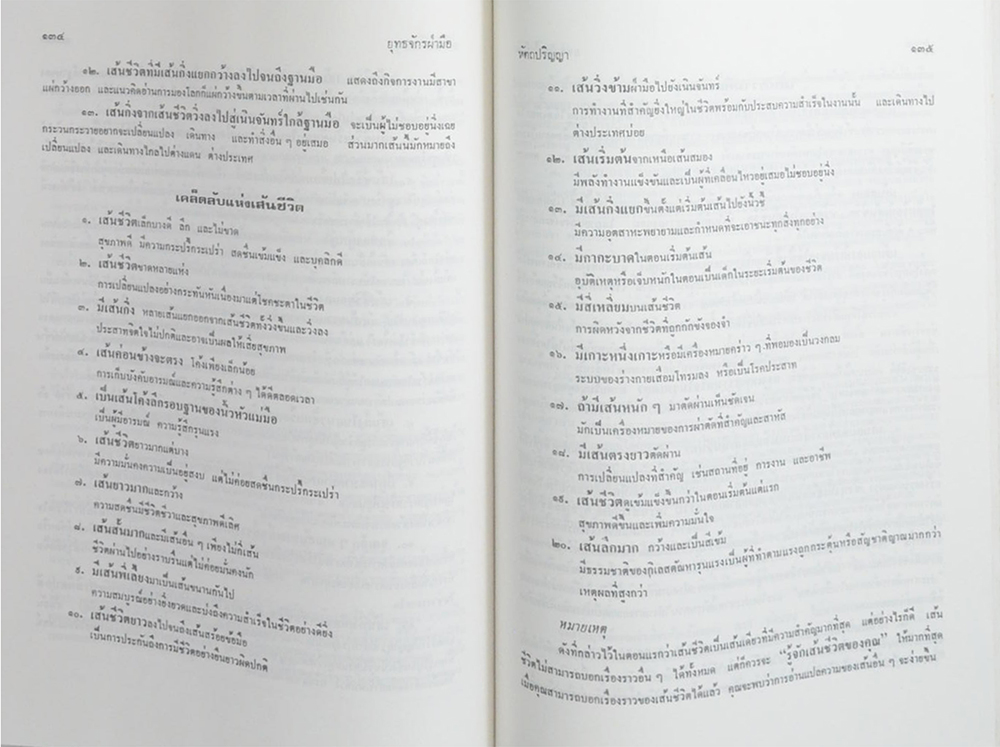 ๑๓๔
ยุทธจักรฝ่ามือ
๑๒. เส้นชีวิตที่มีเส้นกิ่งแยกกว้างลงไปจนถึงฐานมือ แสดงถึงกิจการงานมีสาขา
แผ่กว้างออก และแนวคิดอ่านการมองโลกก็แผ่กว้างขึ้นตามเวลาที่ผ่านไปเช่นกัน
๑๓. เส้นกิ่งจากเส้นชีวิตวิ่งลงไปสู่เนินจันทร์ใกล้ฐานมือ จะเป็นผู้ไม่ชอบอยู่นิ่งเฉย
กระวนกระวายอยากจะเปลี่ยนแปลง เดินทาง และทำสิ่งอื่น ๆ อยู่เสมอ ส่วนมากเส้นนี้มักหมายถึง
เปลี่ยนแปลง และเดินทางไกลไปต่างแดน ต่างประเทศ
เคล็ดลับแห่งเส้นชีวิต
๑. เส้นชีวิตเล็กบางดี ลึก และไม่ขาด
สุขภาพดี มีความกระปรี้กระเปร่า สดชื่นแข็งแข็ง และบุคลิกดี
๒. เส้นชีวิตขาดหลายแห่ง
การเปลี่ยนแปลงอย่างกระทันหันเนื่องมาแต่โชคชะตาในชีวิต
๓. มีเส้นกิ่ง หลายเส้นแยกออกจากเส้นชีวิตทั้งวิ่งขึ้นและวิ่งลง
ประสาทจิตใจไม่ปกติและอาจเป็นผลให้เสื่อสุขภาพ
๔. เส้นค่อนข้างจะตรง โค้งเพียงเล็กน้อย
การเก็บบังคับอารมณ์และความรู้สึกต่าง ๆ ได้ดีตลอดเวลา
๕. เป็นเส้นโค้งลึกรอบฐานของนิ้วหัวแม่มือ
เป็นผู้มีอารมณ์ ความรู้สึกรุนแรง
๖. เส้นชีวิตยาวมากแต่บาง
มีความมั่นคงความเป็นอยู่สงบ แต่ไม่ค่อยสดชื่นกระปรี้กระเปร่า
๗. เส้นยาวมากและกว้าง
ความสดชื่นมีชีวิตชีวาและสุขภาพดีเลิศ
๘. เส้นสั้นมากและมีเส้นอื่น ๆ เพียงไม่กี่เส้น
ชีวิตผ่านไปอย่างราบรื่นแต่ไม่ค่อยมั่นคงนัก
๙. มีเส้นพี่เลี้ยงมาเป็นเส้นขนานกันไป
ความสมบูรณ์อย่างยิ่งยวดและบ่งถึงความสำเร็จในชีวิตอย่างดียิ่ง
๑๐. เส้นชีวิตยาวลงไปจนถึงเส้นสร้อยข้อมือ
เป็นการประกันถึงการมีชีวิตอย่างยืนยาวผิดปกติ
หัตถปริญญา
๑๓๕
๑๑. เส้นวิ่งข้ามฝ่ามือไปยังเนินจันทร์
การทำงานที่สำคัญยิ่งใหญ่ในชีวิตพร้อมกับประสบความสำเร็จในงานนั้น และเดินทางไป
ต่างประเทศบ่อย
๑๒. เส้นเริ่มต้นจากเหนือเส้นสมอง
มีพลังทำงานแข็งขันและเป็นผู้ที่เคลื่อนไหวอยู่เสมอไม่ชอบอยู่นิ่ง
๑๓. มีเส้นกิ่งแยกขึ้นตั้งแต่เริ่มต้นเส้นไปยังนิ้วชี้
มีความอุตสาหะพยายามและกำหนดที่จะเอาชนะทุกสิ่งทุกอย่าง
๑๔. มีกากะบาดในตอนเริ่มต้นเส้น
อุบัติเหตุหรือเจ็บหนักในตอนเป็นเด็กในระยะเริ่มต้นของชีวิต
๑๕. มีสี่เหลี่ยมบนเส้นชีวิต
การผิดหวังจากชีวิตที่ถูกกักขังจองจำ
๑๖. มีเกาะหนึ่งเกาะหรือมีเครื่องหมายคร่าว ๆ ที่พอมองเป็นวงกลม
ระบบของร่างกายเสื่อมโทรมลง หรือเป็นโรคประสาท
๑๗. ถ้ามีเส้นหนัก ๆ มาตัดผ่านเห็นชัดเจน
มักเป็นเครื่องหมายของการผ่าตัดที่สำคัญและสาหัส
๑๘. มีเส้นตรงยาวตัดผ่าน
การเปลี่ยนแปลงที่สำคัญ เช่นสถานที่อยู่ การงาน และอาชีพ
๑๙. เส้นชีวิตดูเข้มแข็งขึ้นกว่าในตอนเริ่มต้นแต่แรก
สุขภาพดีขึ้นและเพิ่มความมั่นใจ
๒๐. เส้นลึกมาก กว้างและเป็นสีเข้ม
มีธรรมชาติของกิเลสตัณหารุนแรงเป็นผู้ที่ทำตามแรงถูกกระตุ้นหรือสัญชาติญาณมากกว่า
เหตุผลที่สูงกว่า
หมายเหตุ
ดังที่กล่าวไว้ในตอนแรกว่าเส้นชีวิตเป็นเส้นเดียวที่มีความสำคัญมากที่สุด แต่อย่างไรก็ดี เส้น
ชีวิตไม่สามารถบอกเรื่องราวอื่น ๆ ได้ทั้งหมด แต่ก็ควรจะ “รู้จักเส้นชีวิตของคุณ” ให้มากที่สุด
เมื่อคุณสามารถบอกเรื่องราวของเส้นชีวิตได้แล้ว คุณจะพบว่าการอ่านแปลความของเส้นอื่น ๆ จะง่ายขึ้น